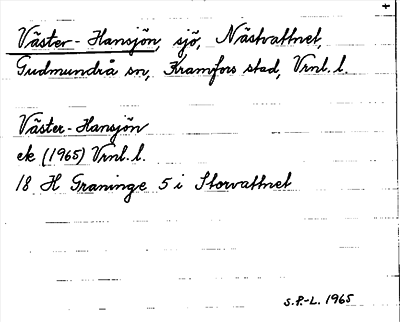 Väster-Hansjön, sjö, Nästvattnet,
Gudmundrå sn, Kramfors stad, Vrnl. l.
Väster-Hansjön
ek (1965) Vrnl. l.
18 H Graninge 5 i Storvattnet
S.P.-L. 1965